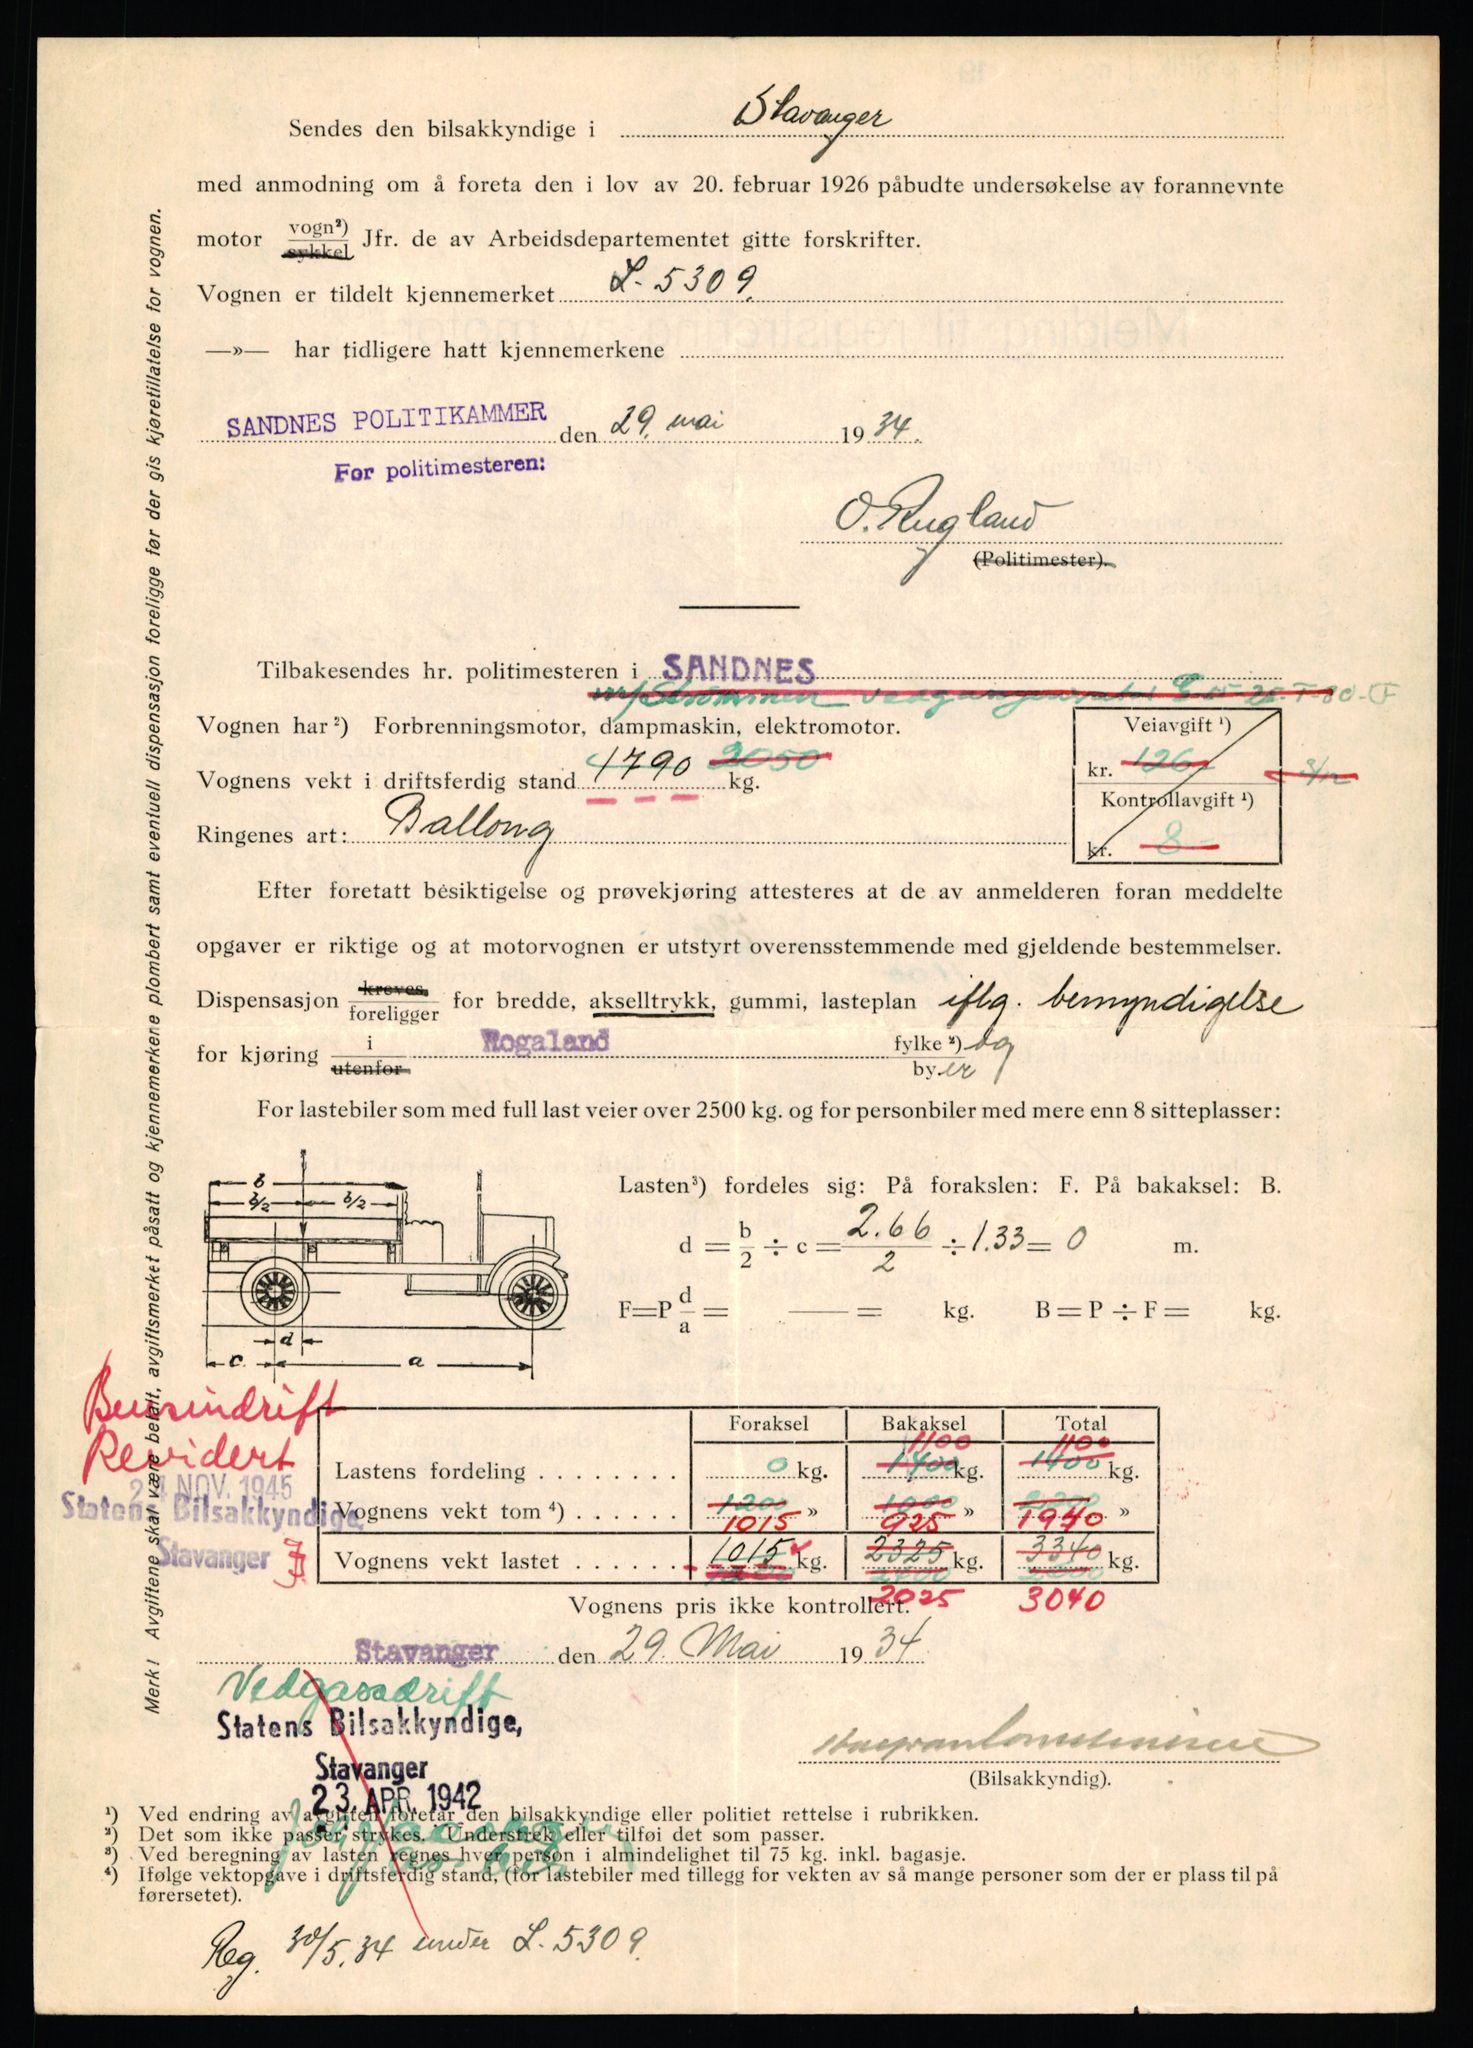 Sendes den bilsakkyndige i Stavanger
med anmodning om å foreta den i lov av 20. februar 1926 påbudte undersøkelse av forannevnte
motor vogn²) sykkel Jfr. de av Arbeidsdepartementet gitte forskrifter.
Vognen er tildelt kjennemerket L-5309.
—»— har tidligere hatt kjennemerkene
SANDNES POLITIKAMMER den 29. mai 1934.
For politimesteren:
O. Rugland
(Politimester).
Tilbakesendes hr. politimesteren i SANDNES
Vognen har ²) Forbrenningsmotor, dampmaskin, elektromotor.
Veiavgift ¹)
Vognens vekt i driftsferdig stand 1790 2050 kg.
kr. 126
Kontrollavgift ¹)
Ringenes art: Ballong
kr. 8
Efter foretatt besiktigelse og prøvekjøring attesteres at de av anmelderen foran meddelte
opgaver er riktige og at motorvognen er utstyrt overensstemmende med gjeldende bestemmelser.
Dispensasjon kreves foreligger for bredde, akselltrykk, gummi, lasteplan iflg. bemyndigelse
for kjøring i utenfor Rogaland fylke ²) og by.er
For lastebiler som med full last veier over 2500 kg. og for personbiler med mere enn 8 sitteplasser:
b
b/2 b/2
d
c a
Lasten³) fordeles sig: På forakslen: F. På bakaksel: B.
d = b/2 ÷ c = 2.66/2 ÷ 1.33 = 0 m.
F=P d/a = — = kg. B = P ÷ F = kg.
Bensindrift
Revidert
24 NOV. 1945
Statens Bilsakkyndige
Stavanger
Foraksel Bakaksel Total
1100 1100
Lastens fordeling . . . . . . . 0 kg. 1400 kg. 1400 kg.
Vognens vekt tom ⁴) . . . . . . 1200 » 1000 » 2200 »
1015 925 1940
Vognens vekt lastet . . . . . . 1015 kg. 2325 kg. 3340 kg.
1200
2025 3040
Vognens pris ikke kontrollert.
Stavanger den 29. Mai 1934
Vedgassdrift
Statens Bilsakkyndige,
Stavanger
23. APR. 1942
(Bilsakkyndig).
¹) Ved endring av avgiften foretar den bilsakkyndige eller politiet rettelse i rubrikken.
²) Det som ikke passer strykes. Understrek eller tilføi det som passer.
³) Ved beregning av lasten regnes hver person i almindelighet til 75 kg. inkl. bagasje.
⁴) Ifølge vektopgave i driftsferdig stand, (for lastebiler med tillegg for vekten av så mange personer som der er plass til på
førersetet).
Reg. 30/5.34 under L. 5309.
Merk! Avgiftene skal være betalt, avgiftsmerket påsatt og kjennemerkene plombert samt eventuell dispensasjon foreligge før der gis kjøretillatelse for vognen.